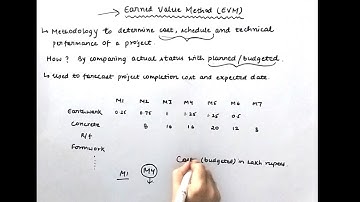 → Earned Value Method (EVM)
→ Methodology to determine cost, schedule and technical
performance of a project.
→ How? By comparing actual status with planned/budgeted.
→ Used to forecast project completion cost and expected date.
M1 M2 M3 M4 M5 M6 M7
Earthwork 0.25 0.75 1 1.25 1.25 0.5
Concrete 8 16 16 20 12 8
R/f
Formwork
Cost (budgeted) in Lakh rupees.
M1 M4